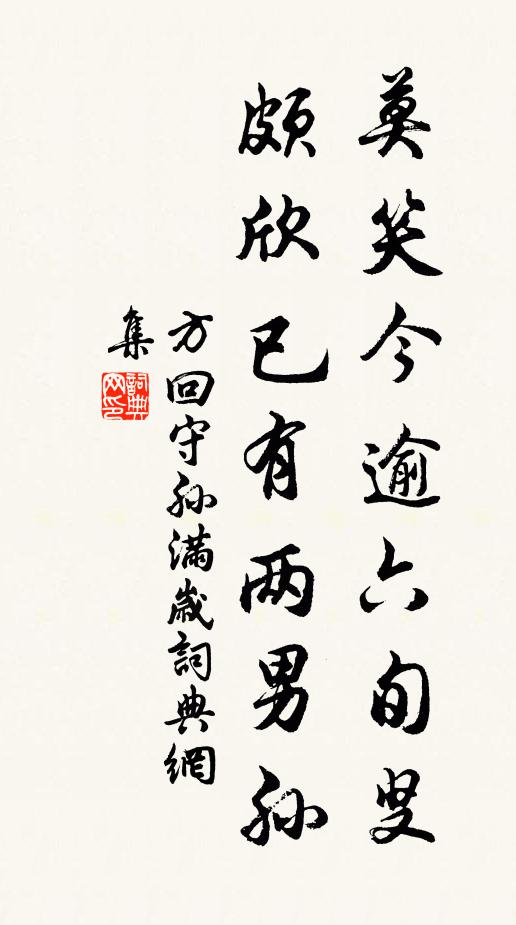 莫笑今逾六旬叟
頗欣已有两男孫
方回守孫滿歲詞典網
集
詞典
网印